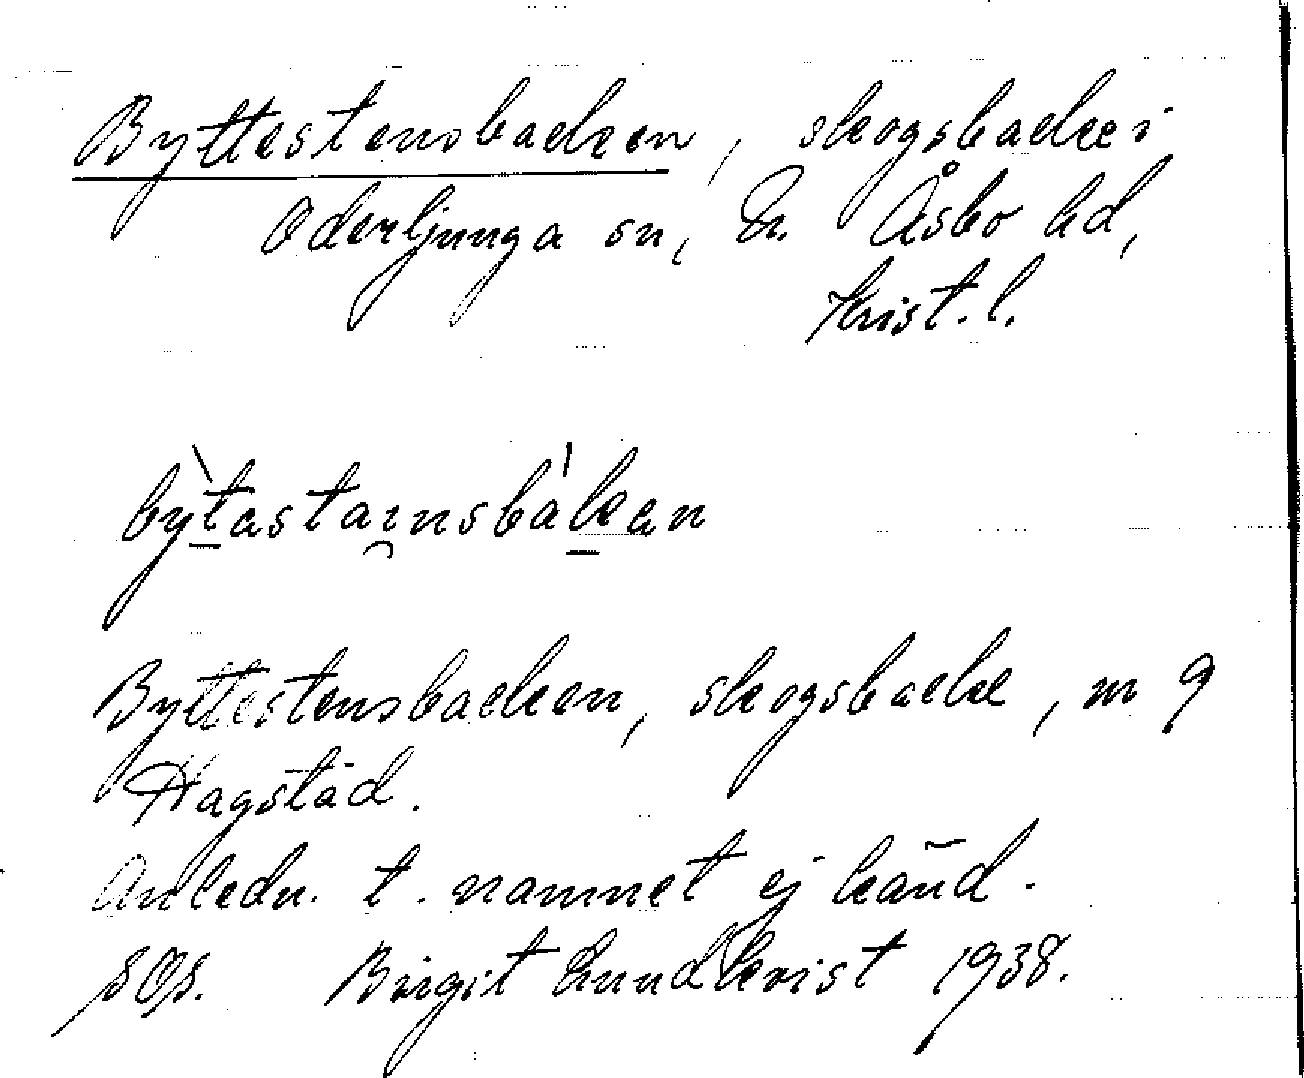 Byttestensbacken, skogsbacke i
Oderljunga sn, N. Åsbo hd,
Krist. l.
bỳtastai̯nsbákan
Byttestensbacken, skogsbacke, m 9
Hagstad.
Anledn. t. namnet ej känd.
SOS. Birgit Lundkvist 1938.